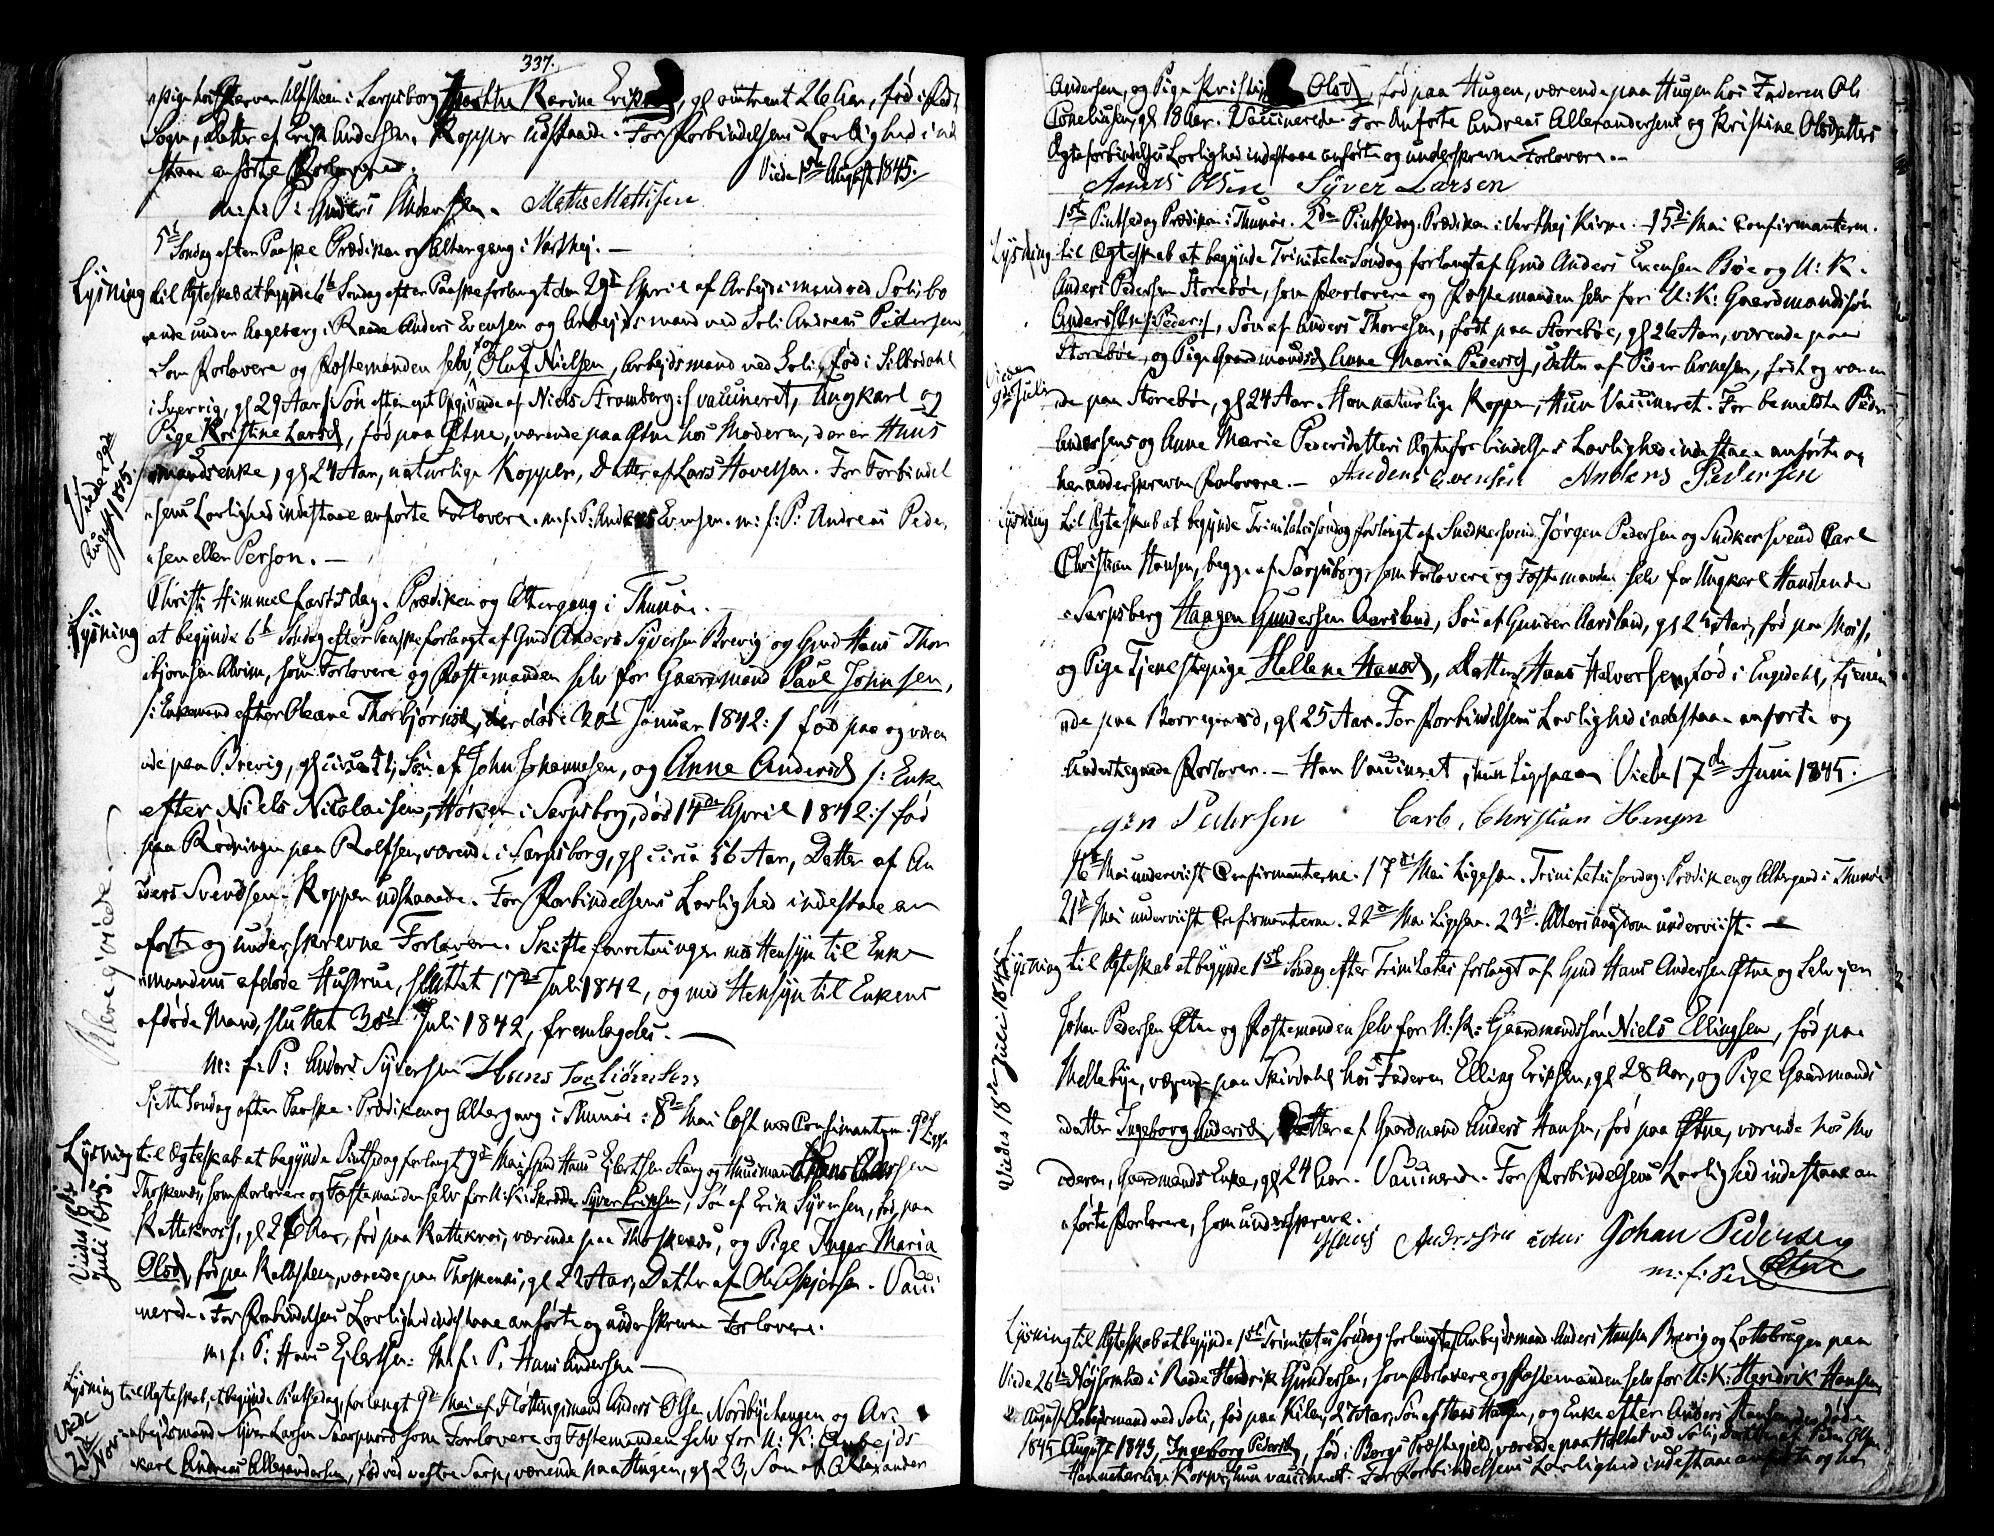 337.
Pige hos Farver Ulfsteen i Sarpsborg Marthe Karine Eriks, gl omtrent 26 Aar, fød i
Sogn, Datter af Erik Andersen. Kopper udstaaede. For Forbindelsens Lovlighed ind
staae anførte Forlovere.
Viede 1ste August 1845.
m: f: P: Anders Andersen. Mathis Mathisen
5te Søndag efter Paaske Prædiken og Altergang i Varthej. —
Lysning til Ægteskab at begynde 6te Søndag efter Paaske forlangt den 29de April af Arbejdsmand ved Soli, bo
ende under Aageberg i Raade Anders Evensen og Arbejdsmand ved Soli Andreas Pedersen
som Forlovere og Fæstemanden selv for Oluf Nielsen, Arbejdsmand ved Soli, fød i Silbodahl
i Sverrig, gl 29 Aar /: Søn efter eget Opgivende af Niels Stromberg :/ vaccineret, Ungkarl og
Pige Kristine Larsd, fød paa Østne, værende paa Østne hos Moderen, der er Huus
mandsenke, gl 24 Aar, naturlige Kopper, Datter af Lars Havelsen. For Forbindel
sens Lovlighed indestaae anførte Forlovere. m: f: P: Anders Evensen. m: f: P: Andreas Peder
sen eller Person. —
Viede 1ste August 1845.
Christi Himmelfartsdag. Prædiken og Altergang i Thunøe. —
Lysning at begynde 6te Søndag efter Paaske forlangt af Gmd Anders Syversen Brevig og Gmd Hans Thor
bjørnsen Alvim, som Forlovere og Fæstemanden selv for Gaardmand Paul Johnsen,
/: Enkemand efter Oleane Thorbjørnsd, der døde 20de Januar 1842 :/ fød paa og væren
de paa Brevig, gl circa Søn af John Johannesen, og Anne Andersd /: Enke
efter Niels Nicolaisen, Høker i Sarpsborg, død 14de April 1842 :/ fød
paa Rødningen paa Rolfsøen, værende i Sarpsborg, gl circa 56 Aar, Datter af An
ders Svendsen. Kopper udstaaede. For Forbindelsens Lovlighed indestaae an
førte og underskrevne Forlovere. Skifteforretninger med Hensyn til Enke
mandens afdøde Hustrue, sluttet 17de Juli 1842, og med Hensyn til Enkens
afdøde Mand, sluttet 30te Juli 1842, fremlagdes. —
Blev ei viede.
m: f: P: Anders Syversen Hans Torbiørnsen
Sjette Søndag efter Paaske: Prædiken og Altergang i Thunøe: 8de Mai læst med Confirmanterne. 9de Lige
Lysning til Ægteskab at begynde Pintsedag forlangt 9de Mai Gmd Hans Ejlertsen Aarg og Huusmand Hans Andersen
Thoskenæs, som Forlovere og Fæstemanden selv for U: K: Skrædder Syver Eriksen, Søn af Erik Syversen, fød paa
Kattekroes, gl 26 Aar, fød paa Kattekroes, værende paa Thoskenæs, og Pige Inger Maria
Olsd, fød paa Kalbsteen, værende paa Thoskenæs, gl 22 Aar, Datter af Ole Asbjørnsen. Vacci
nerede. For Forbindelsens Lovlighed indestaae anførte og underskrevne Forlovere.
Viedes 18de Juli 1845.
m: f: P: Hans Ejlertsen. m: f: P: Hans Andersen —
Lysning til Ægteskab, at begynde Pintsedag, forlangt 9de Mai af Fløttningsmand Anders Olsen Nordbyehaugen og Ar
bejdsmand Syver Larsen som Forlovere og Fæstemanden selv for U: K: Arbejds
karl Andreas Allexandersen, fød ved vestre Sarp, værende paa Hugen, gl 23, Søn af Allexander
Viede 21de Nov
Andersen, og Pige Kristine Olsd, fød paa Hugen, værende paa Hugen hos Faderen Ole
Corneliusen, gl 18 Aar. Vaccinerede. For Anførte Andreas Allexandersens og Kristine Olsdatters
Ægteforbindelses Lovlighed indestaae anførte og underskrevne Forlovere. —
Anders Olsen Syver Larsen
1ste Pintsedag Prædiken i Thunøe. 2den Pintsedag Prædiken i Varthej Kirke. 15de Mai Confirmanterne.
Lysning til Ægteskab at begynde Trinitatis Søndag forlangt af Gmd Anders Evensen Bøe og U: K:
Anders Pedersen Storebøe, som Forlovere og Fæstemanden selv for U: K: Gaardmandssøn
Andersen /: Peder :/, Søn af Anders Thoresen, født paa Storebøe, gl 26 Aar, værende paa
Storebøe, og Pige Gaardmandsd Anne Maria Pedersd, Datter af Peder Arnesen, født og væren
de paa Storebøe, gl 24 Aar. Han naturlige Kopper, Hun Vaccineret. For bemeldte Peder
Andersens og Anne Marie Pedersdatters Ægteforbindelses Lovlighed indestaae anførte og
herunderskrevne Forlovere. — Anders Evensen Anders Pedersen
Viedes 9de Juli
Lysning til Ægteskab at begynde Trinitatis søndag forlangt af Snedkersvend Jørgen Pedersen og Snedkersvend Carl
Christian Hansen, begge af Sarpsborg, som Forlovere og Fæstemanden selv for Ungkarl Handlende
i Sarpsborg Haagen Gundersen Aarsland, Søn af Gunder Aarsland, gl 25 Aar, fød paa Moss,
og Pige Tjenestepige Hellene Hansd, Datter af Hans Halvorsen, fød i Engedahl, tjenen
de paa Borregaard, gl 25 Aar. For Forbindelsens Lovlighed indestaae anførte og
undertegnede Forlovere. — Han Vaccineret, hun ligesaa. Viede 17de Juni 1845.
Jørgen Pedersen Carl Christian Hansen
16de Mai underviist Confirmanterne. 17de Mai ligesaa. Trinitatis søndag: Prædiken og Altergang i Thunøe
21de Mai underviist Confirmanterne. 22de Mai ligesaa. 23de Alterets Ungdom underviist. —
Lysning til Ægteskab at begynde 1ste Søndag efter Trinitatis forlangt af Gmd Hans Andersen Østne og Selvejer
Johan Pedersen Østne og Fæstemanden selv for U: K: Gaardmandssøn Niels Ellingsen, fød paa
Mellebye, værende paa Skivdahl hos Faderen Elling Eriksen, gl 28 Aar, og Pige Gaardmands
datter Ingeborg Andersd, Datter af Gaardmand Anders Hansen, fød paa Østne, værende hos Mo
deren, Gaardmands Enke, gl 24 Aar. Vaccinerede. For Forbindelsens Lovlighed indestaae an
førte Forlovere, som underskrevne.
Viedes 18de Juli 1845
Hans Andersen Østne Johan Pedersen
m: f: P: Østne
Lysning til Ægteskab at begynde 1ste Trinitatis søndag forlangt af Arbejdsmand Anders Hansen Brevig og Lottobruger paa
Nøjsomhed i Raade Hendrik Gundersen, som Forlovere og Fæstemanden selv for U: K: Hendrik Hansen,
Arbejdsmand ved Soli, fød paa Kilen, 27 Aar, Søn af Hans Hansen, og Enke efter Anders Hansen der døde
August 1843, Ingeborg Pedersd, fød i Bergs Præstegjeld, værende paa Holtet ved Soli, Datter af Peder Olsen
Han naturlige Kopper, hun vaccineret. For Forbindelsens Lovlighed indestaae anførte og her
Viede 26de August 1845